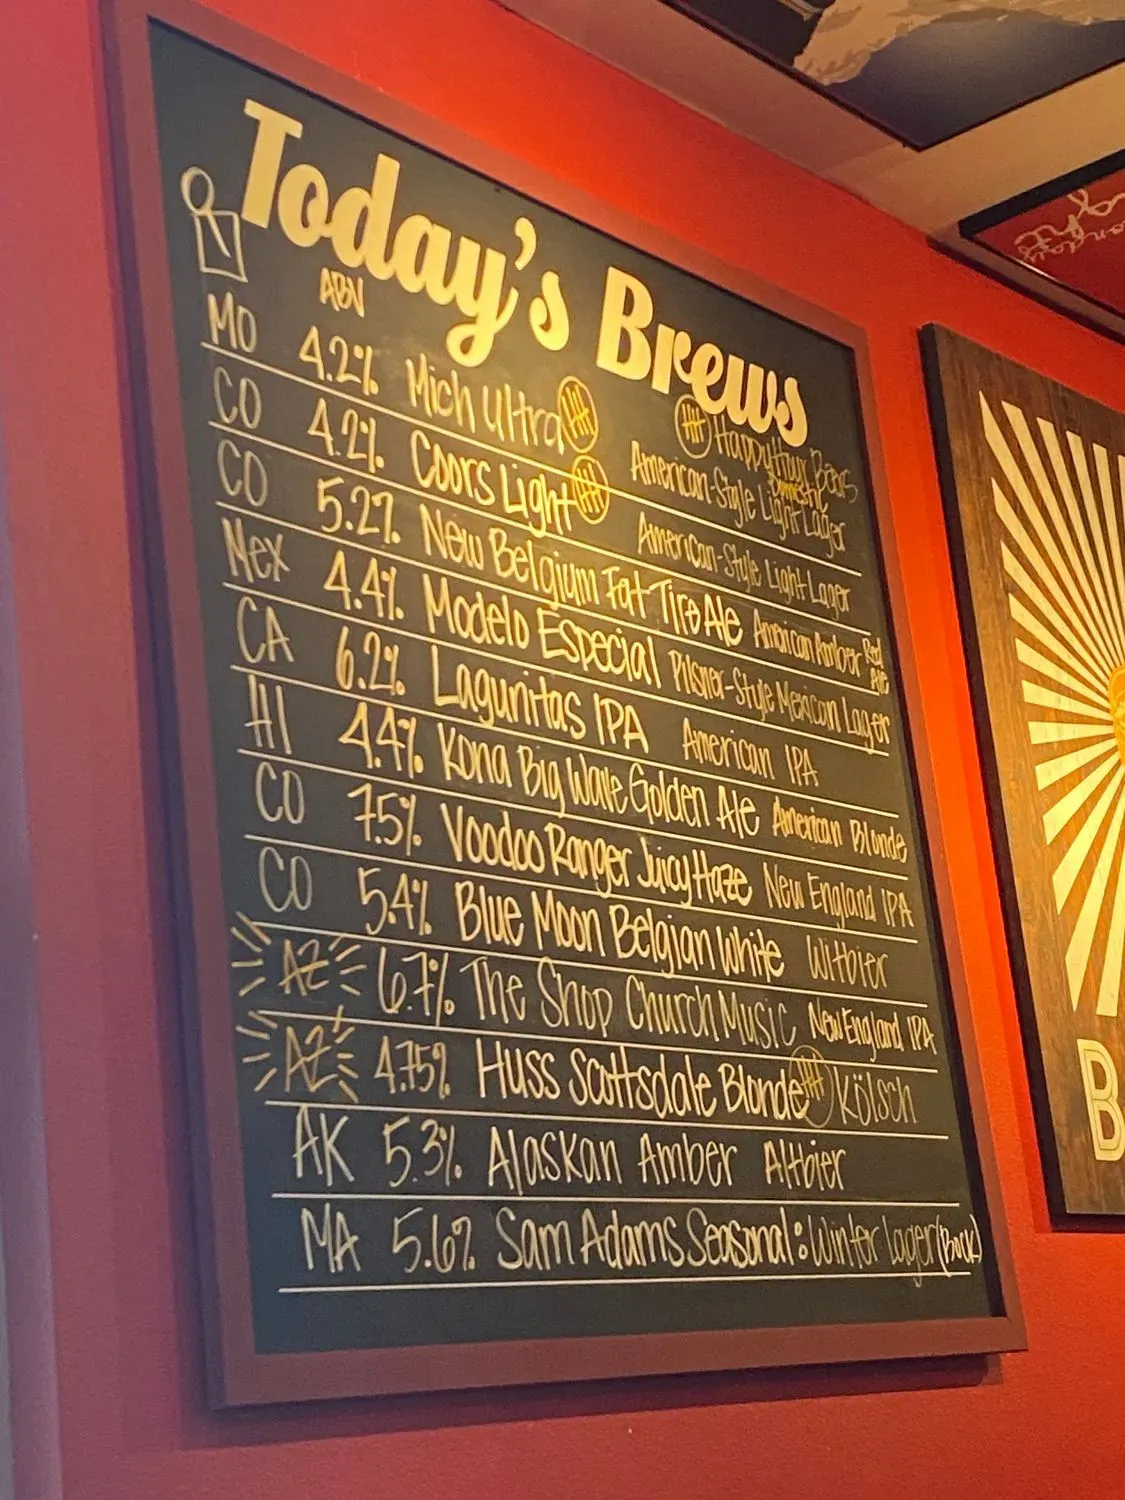 Today's Brews
ABV
Happy Hour Beers
Domestic
MO 4.2% Mich Ultra American-Style Light Lager
CO 4.2% Coors Light American-Style Light Lager
CO 5.2% New Belgium Fat Tire Ale American Amber Red Ale
Mex 4.4% Modelo Especial Pilsner-Style Mexican Lager
CA 6.2% Lagunitas IPA American IPA
HI 4.4% Kona Big Wave Golden Ale American Blonde
CO 7.5% Voodoo Ranger Juicy Haze New England IPA
CO 5.4% Blue Moon Belgian White Witbier
AZ 6.7% The Shop Church Music New England IPA
AZ 4.75% Huss Scottsdale Blonde Kölsch
AK 5.3% Alaskan Amber Altbier
MA 5.6% Sam Adams Seasonal: Winter Lager (Bock)
B